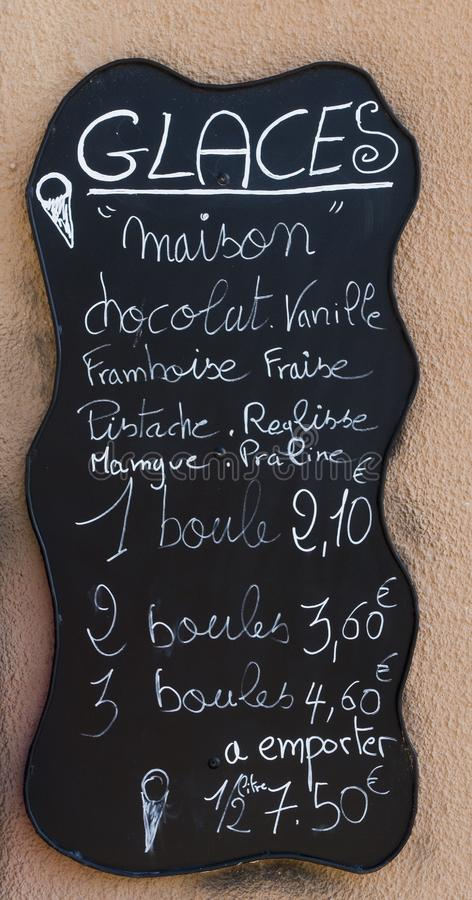 GLACES
"maison"
chocolat. Vanille
Framboise Fraise
Pistache. Reglisse
Mamgue. Praline
1 boule 2,10€
2 boules 3,60€
3 boules 4,60€
a emporter
1/2 litre 7.50€